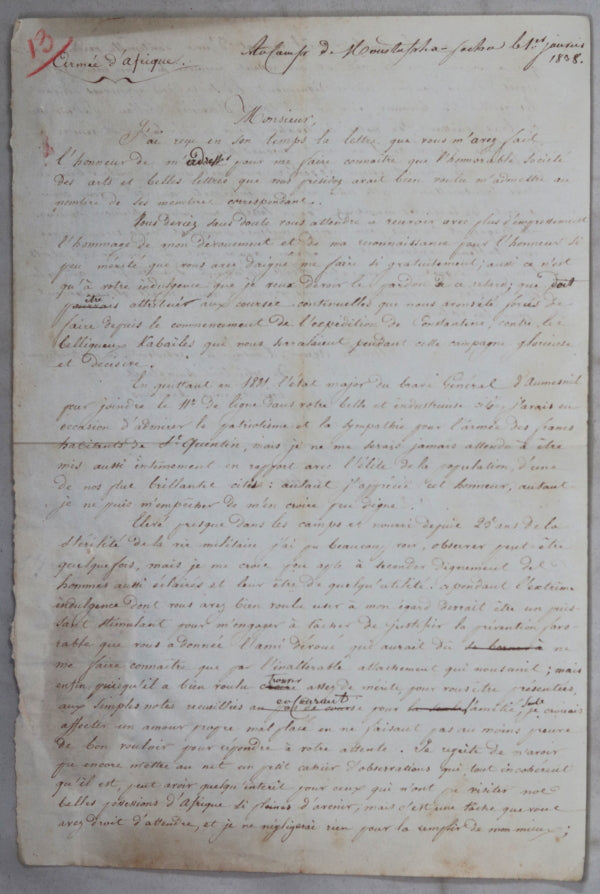 13
Armée d'Afrique.
Au Camp de Moustapha-pacha le 1er janvier
1838.
Monsieur,
J'ai reçu en son temps la lettre que vous m'avez fait
l'honneur de m'adresser pour me faire connaitre que l'honorable Société
des arts et belles lettres que vous présidez avait bien voulu m'admettre au
nombre de ses membres correspondants.
Vous deviez sans doute vous attendre à recevoir avec plus d'empressement
l'hommage de mon dévouement et de ma reconnaissance pour l'honneur si
peu mérité que vous avez daigné me faire si gratuitement; aussi ce n'est
qu'à votre indulgence que je veux devoir le pardon de ce retard; que peut
être attribuer aux courses continuelles que nous avons été forcés de
faire depuis le commencement de l'expédition de Constantine, contre les
belliqueux Kabailes qui nous harcelaient pendant cette campagne glorieuse
et décisive.
En quittant en 1831 l'état major du brave Général d'Aumesnil
pour joindre le de ligne dans votre belle et industrieuse cité, j'avais eu
occasion d'admirer le patriotisme et la sympathie pour l'armée des francs
habitants de St. Quentin, mais je ne me serais jamais attendu à être
mis aussi intimement en rapport avec l'élite de la population, d'une
de nos plus brillantes cités: autant j'apprécie cet honneur, autant
je ne puis m'empêcher de m'en croire peu digne.
Elevé presque dans les camps et nourri depuis 25 ans de la
stérilité de la vie militaire j'ai pu beaucoup voir, observer peut être
quelquefois, mais je me crois peu apte à seconder dignement des
hommes aussi éclairés et leur être de quelqu'utilité. cependant l'extrême
indulgence dont vous avez bien voulu user à mon égard devrait être un puis-
sant stimulant pour m'engager à tâcher de justifier la prévention favo-
rable que vous a donnée l'ami dévoué qui aurait dû ne
me faire connaitre que par l'inaltérable attachement qui nous unit; mais
enfin puisqu'il a bien voulu trouver assez de mérite, pour vous être présentées,
aux simples notes recueillies au courant pour famille, je croirais
affecter un amour propre mal placé en ne faisant pas au moins preuve
de bon vouloir pour répondre à votre attente. Je regrette de n'avoir
pu encore mettre au net un petit cahier d'observations qui tout incohérent
qu'il est, peut avoir quelqu'intérêt pour ceux qui n'ont pu visiter nos
belles possessions d'Afrique si pleines d'avenir, mais c'est une tâche que vous
avez droit d'attendre, et je ne négligerai rien pour la remplir de mon mieux;